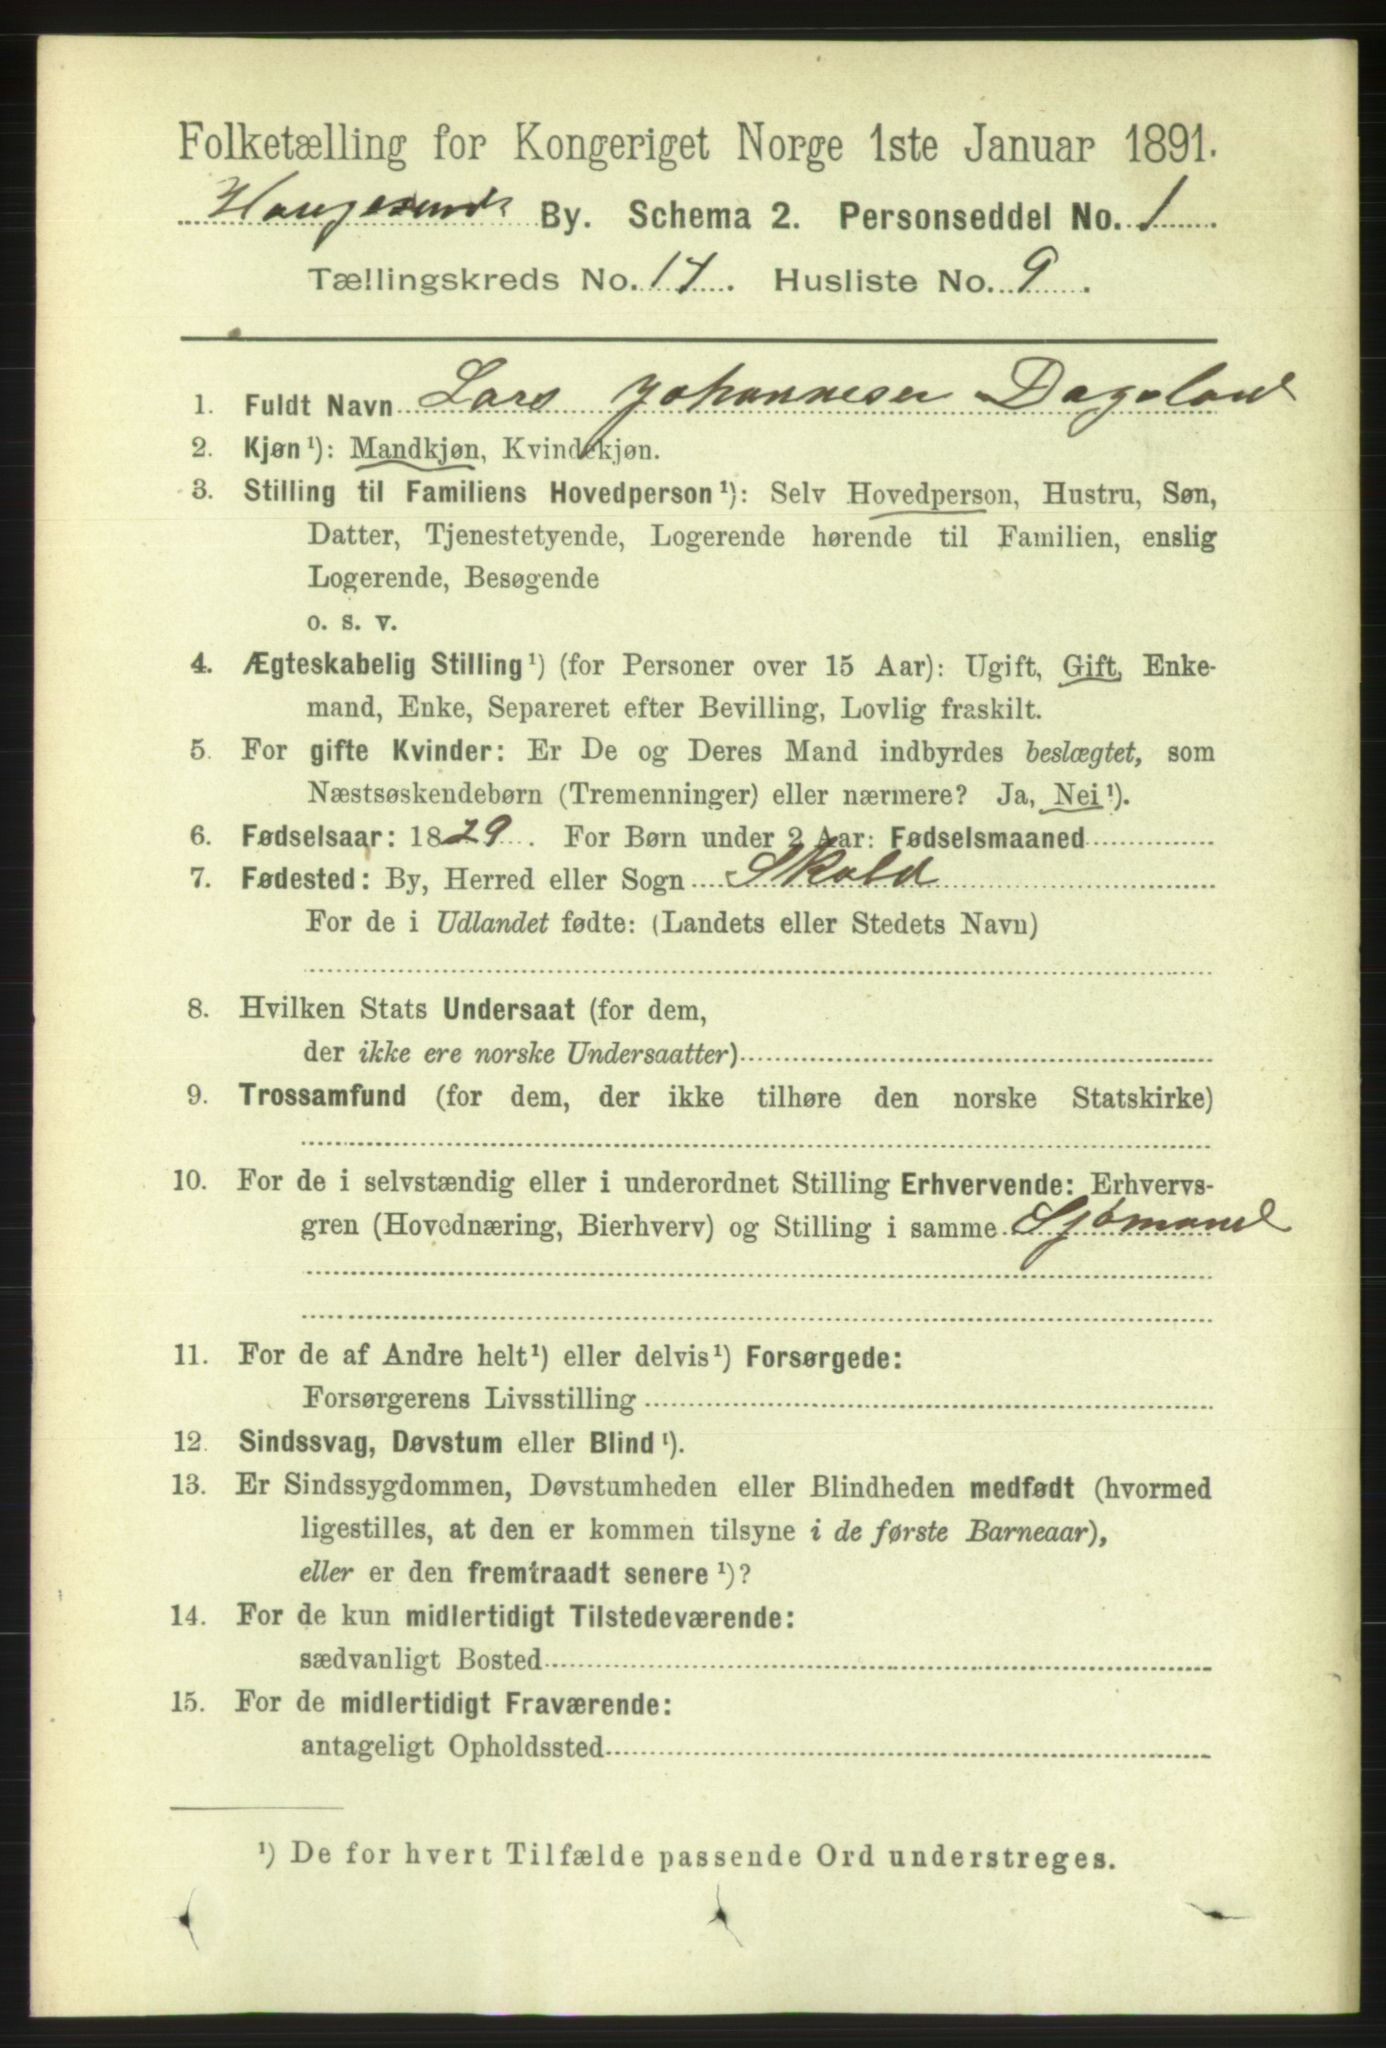 Folketælling for Kongeriget Norge 1ste Januar 1891.
Haugesund By. Schema 2. Personseddel No. 1
Tællingskreds No. 14. Husliste No. 9.
1. Fuldt Navn Lars Johannesen Dagsland
2. Kjøn¹): Mandkjøn, Kvindekjøn.
3. Stilling til Familiens Hovedperson¹): Selv Hovedperson, Hustru, Søn,
Datter, Tjenestetyende, Logerende hørende til Familien, enslig
Logerende, Besøgende
o. s. v.
4. Ægteskabelig Stilling¹) (for Personer over 15 Aar): Ugift, Gift, Enke-
mand, Enke, Separeret efter Bevilling, Lovlig fraskilt.
5. For gifte Kvinder: Er De og Deres Mand indbyrdes beslægtet, som
Næstsøskendebørn (Tremenninger) eller nærmere? Ja, Nei¹).
6. Fødselsaar: 1829. For Børn under 2 Aar: Fødselsmaaned
7. Fødested: By, Herred eller Sogn Skold
For de i Udlandet fødte: (Landets eller Stedets Navn)
8. Hvilken Stats Undersaat (for dem,
der ikke ere norske Undersaatter)
9. Trossamfund (for dem, der ikke tilhøre den norske Statskirke)
10. For de i selvstændig eller i underordnet Stilling Erhvervende: Erhvervs-
gren (Hovednæring, Bierhverv) og Stilling i samme Sjømand
11. For de af Andre helt¹) eller delvis¹) Forsørgede:
Forsørgerens Livsstilling
12. Sindssvag, Døvstum eller Blind¹).
13. Er Sindssygdommen, Døvstumheden eller Blindheden medfødt (hvormed
ligestilles, at den er kommen tilsyne i de første Barneaar),
eller er den fremtraadt senere¹)?
14. For de kun midlertidigt Tilstedeværende:
sædvanligt Bosted
15. For de midlertidigt Fraværende:
antageligt Opholdssted
¹) De for hvert Tilfælde passende Ord understreges.